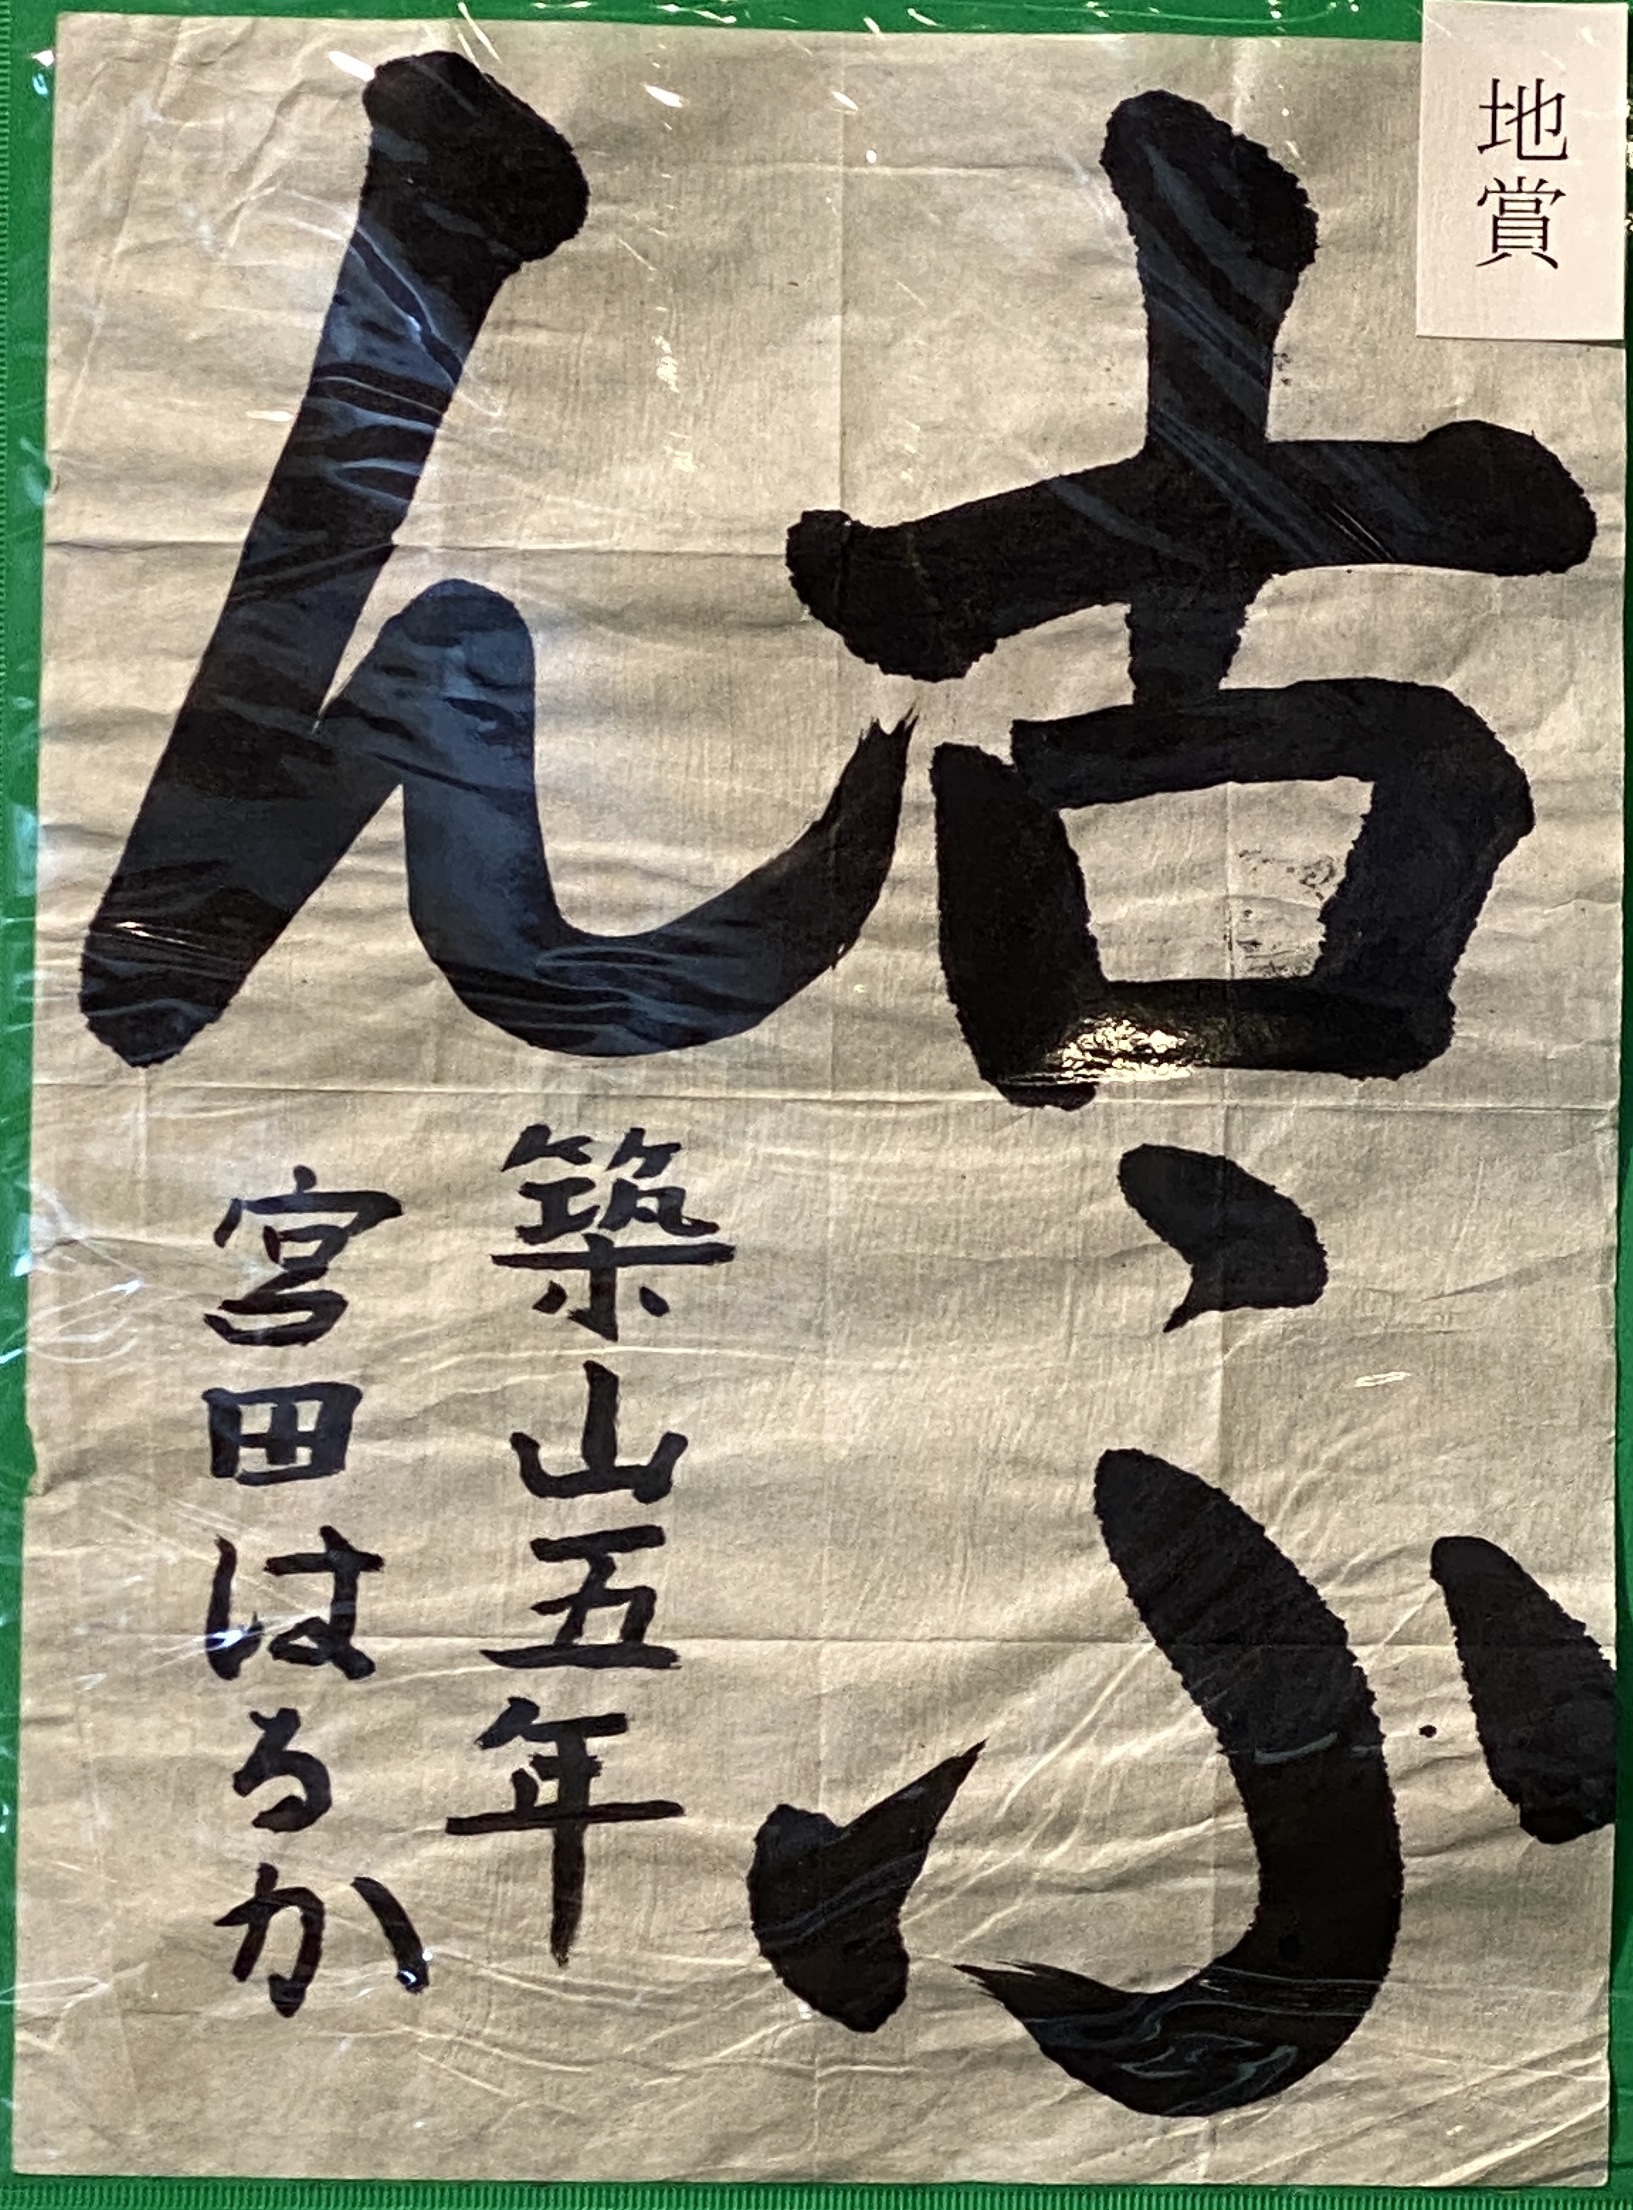 地賞
古ふ
ん
築山五年
宮田はるか